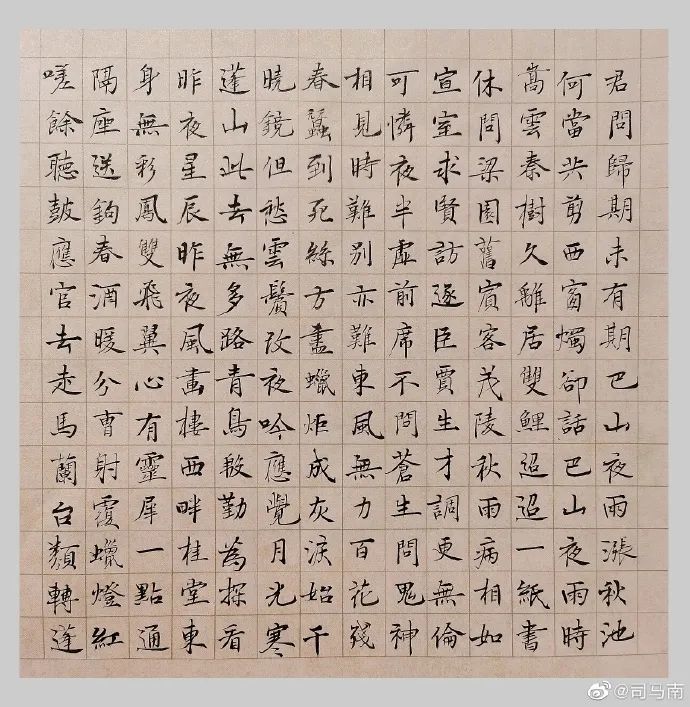 君問歸期未有期巴山夜雨漲秋池
何當共剪西窗燭卻話巴山夜雨時
嵩雲秦樹久離居雙鯉迢迢一紙書
休問梁園舊賓客茂陵秋雨病相如
宣室求賢訪逐臣賈生才調更無倫
可憐夜半虛前席不問蒼生問鬼神
相見時難別亦難東風無力百花殘
春蠶到死絲方盡蠟炬成灰淚始干
曉鏡但愁雲鬢改夜吟應覺月光寒
蓬山此去無多路青鳥殷勤為探看
昨夜星辰昨夜風畫樓西畔桂堂東
身無彩鳳雙飛翼心有靈犀一點通
隔座送鉤春酒暖分曹射覆蠟燈紅
嗟餘聽鼓應官去走馬蘭台類轉蓬
@司马南